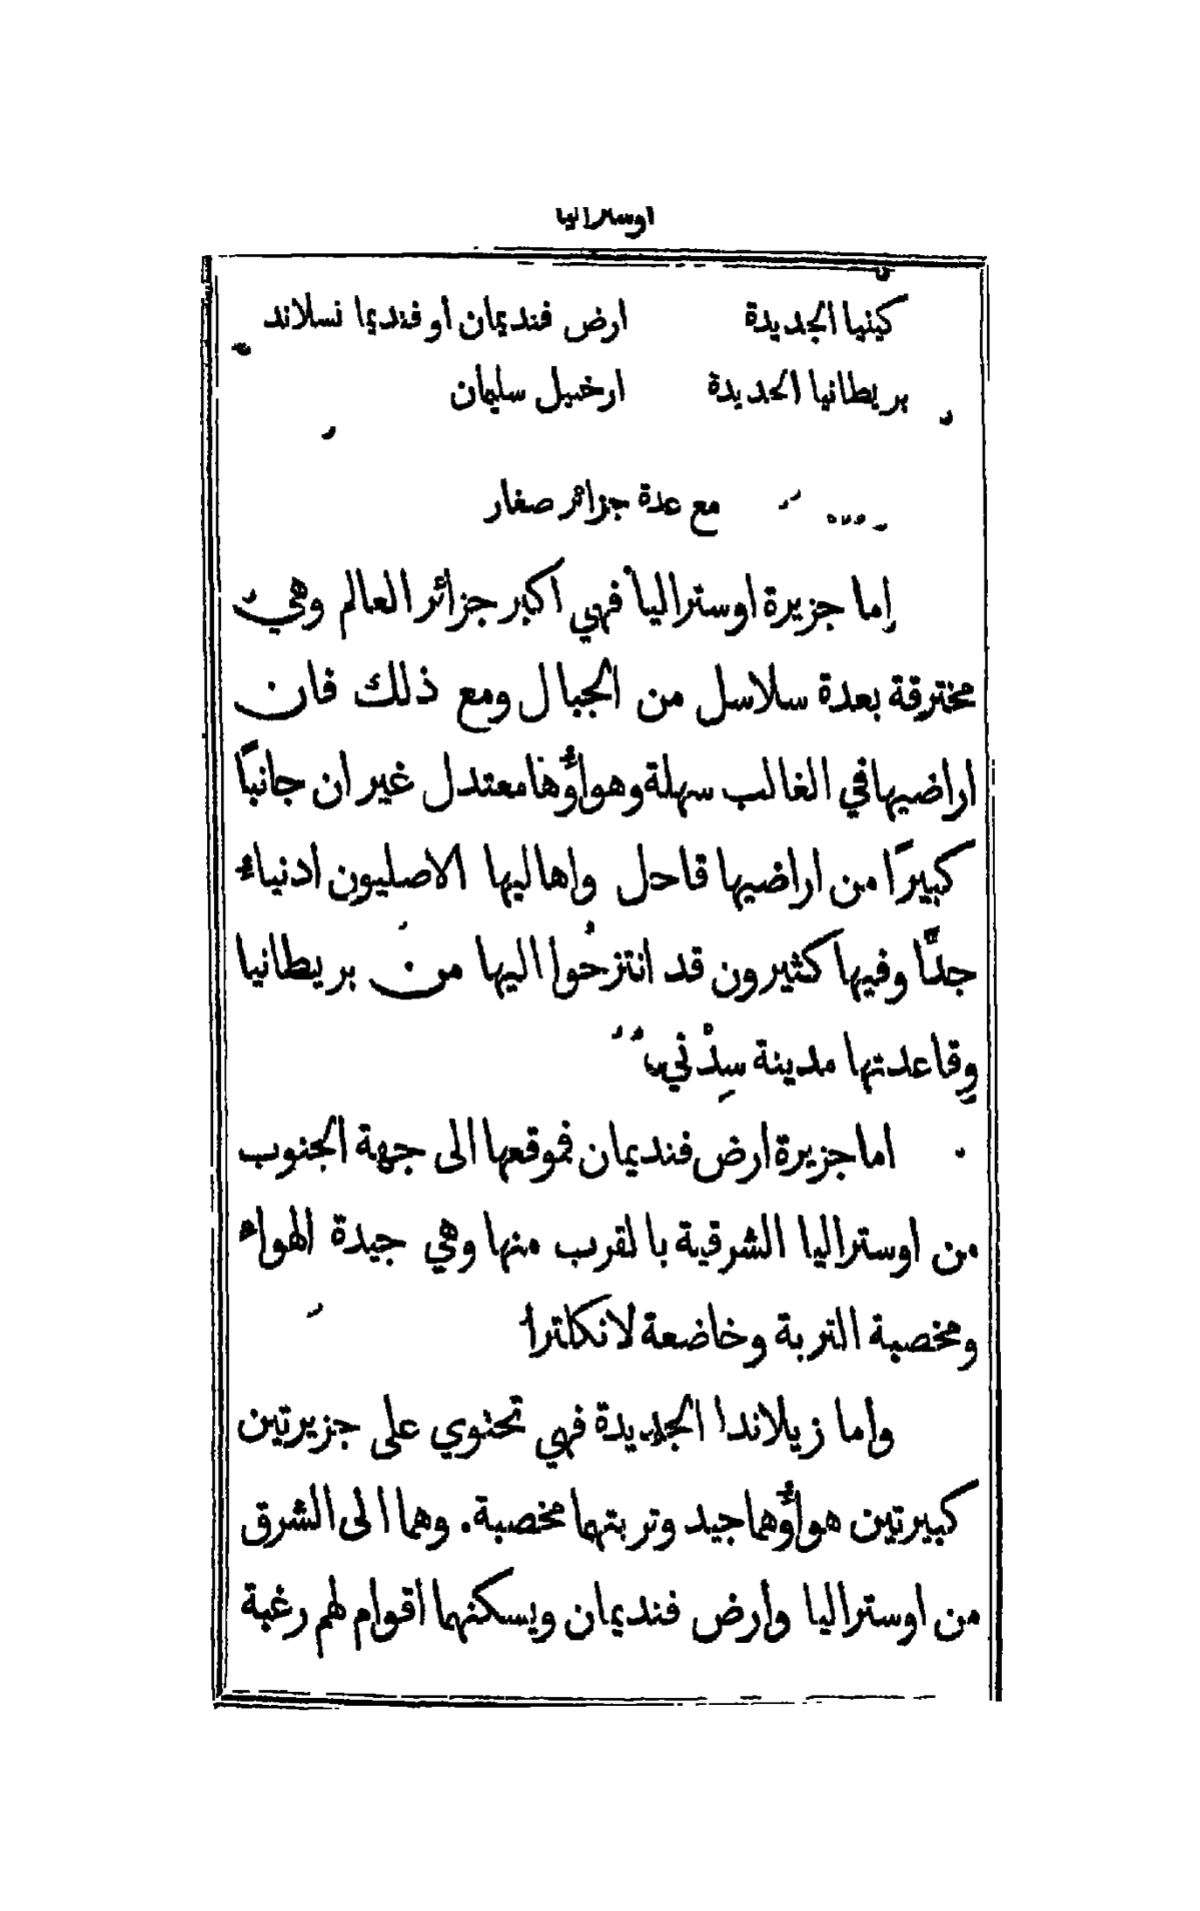 اوستراليا
كينيا الجديدة ارض فنديمان أو فنديما نسلاند
بريطانيا الجديدة ارخبيل سليمان
مع عدة جزائر صغار
اما جزيرة اوستراليا فهي اكبر جزائر العالم وهي
مخترقة بعدة سلاسل من الجبال ومع ذلك فان
اراضيها في الغالب سهلة وهواؤها معتدل غير ان جانبًا
كبيرًا من اراضيها قاحل واهاليها الاصليون ادنياء
جدًّا وفيها كثيرون قد انتزحوا اليها من بريطانيا
وقاعدتها مدينة سِدْني
اما جزيرة ارض فنديمان فموقعها الى جهة الجنوب
من اوستراليا الشرقية بالقرب منها وهي جيدة الهواء
ومخصبة التربة وخاضعة لانكلترا
واما زيلاندا الجديدة فهي تحتوي على جزيرتين
كبيرتين هواؤهما جيد وتربتهما مخصبة. وهما الى الشرق
من اوستراليا وأرض فنديمان ويسكنهما أقوام لهم رغبة